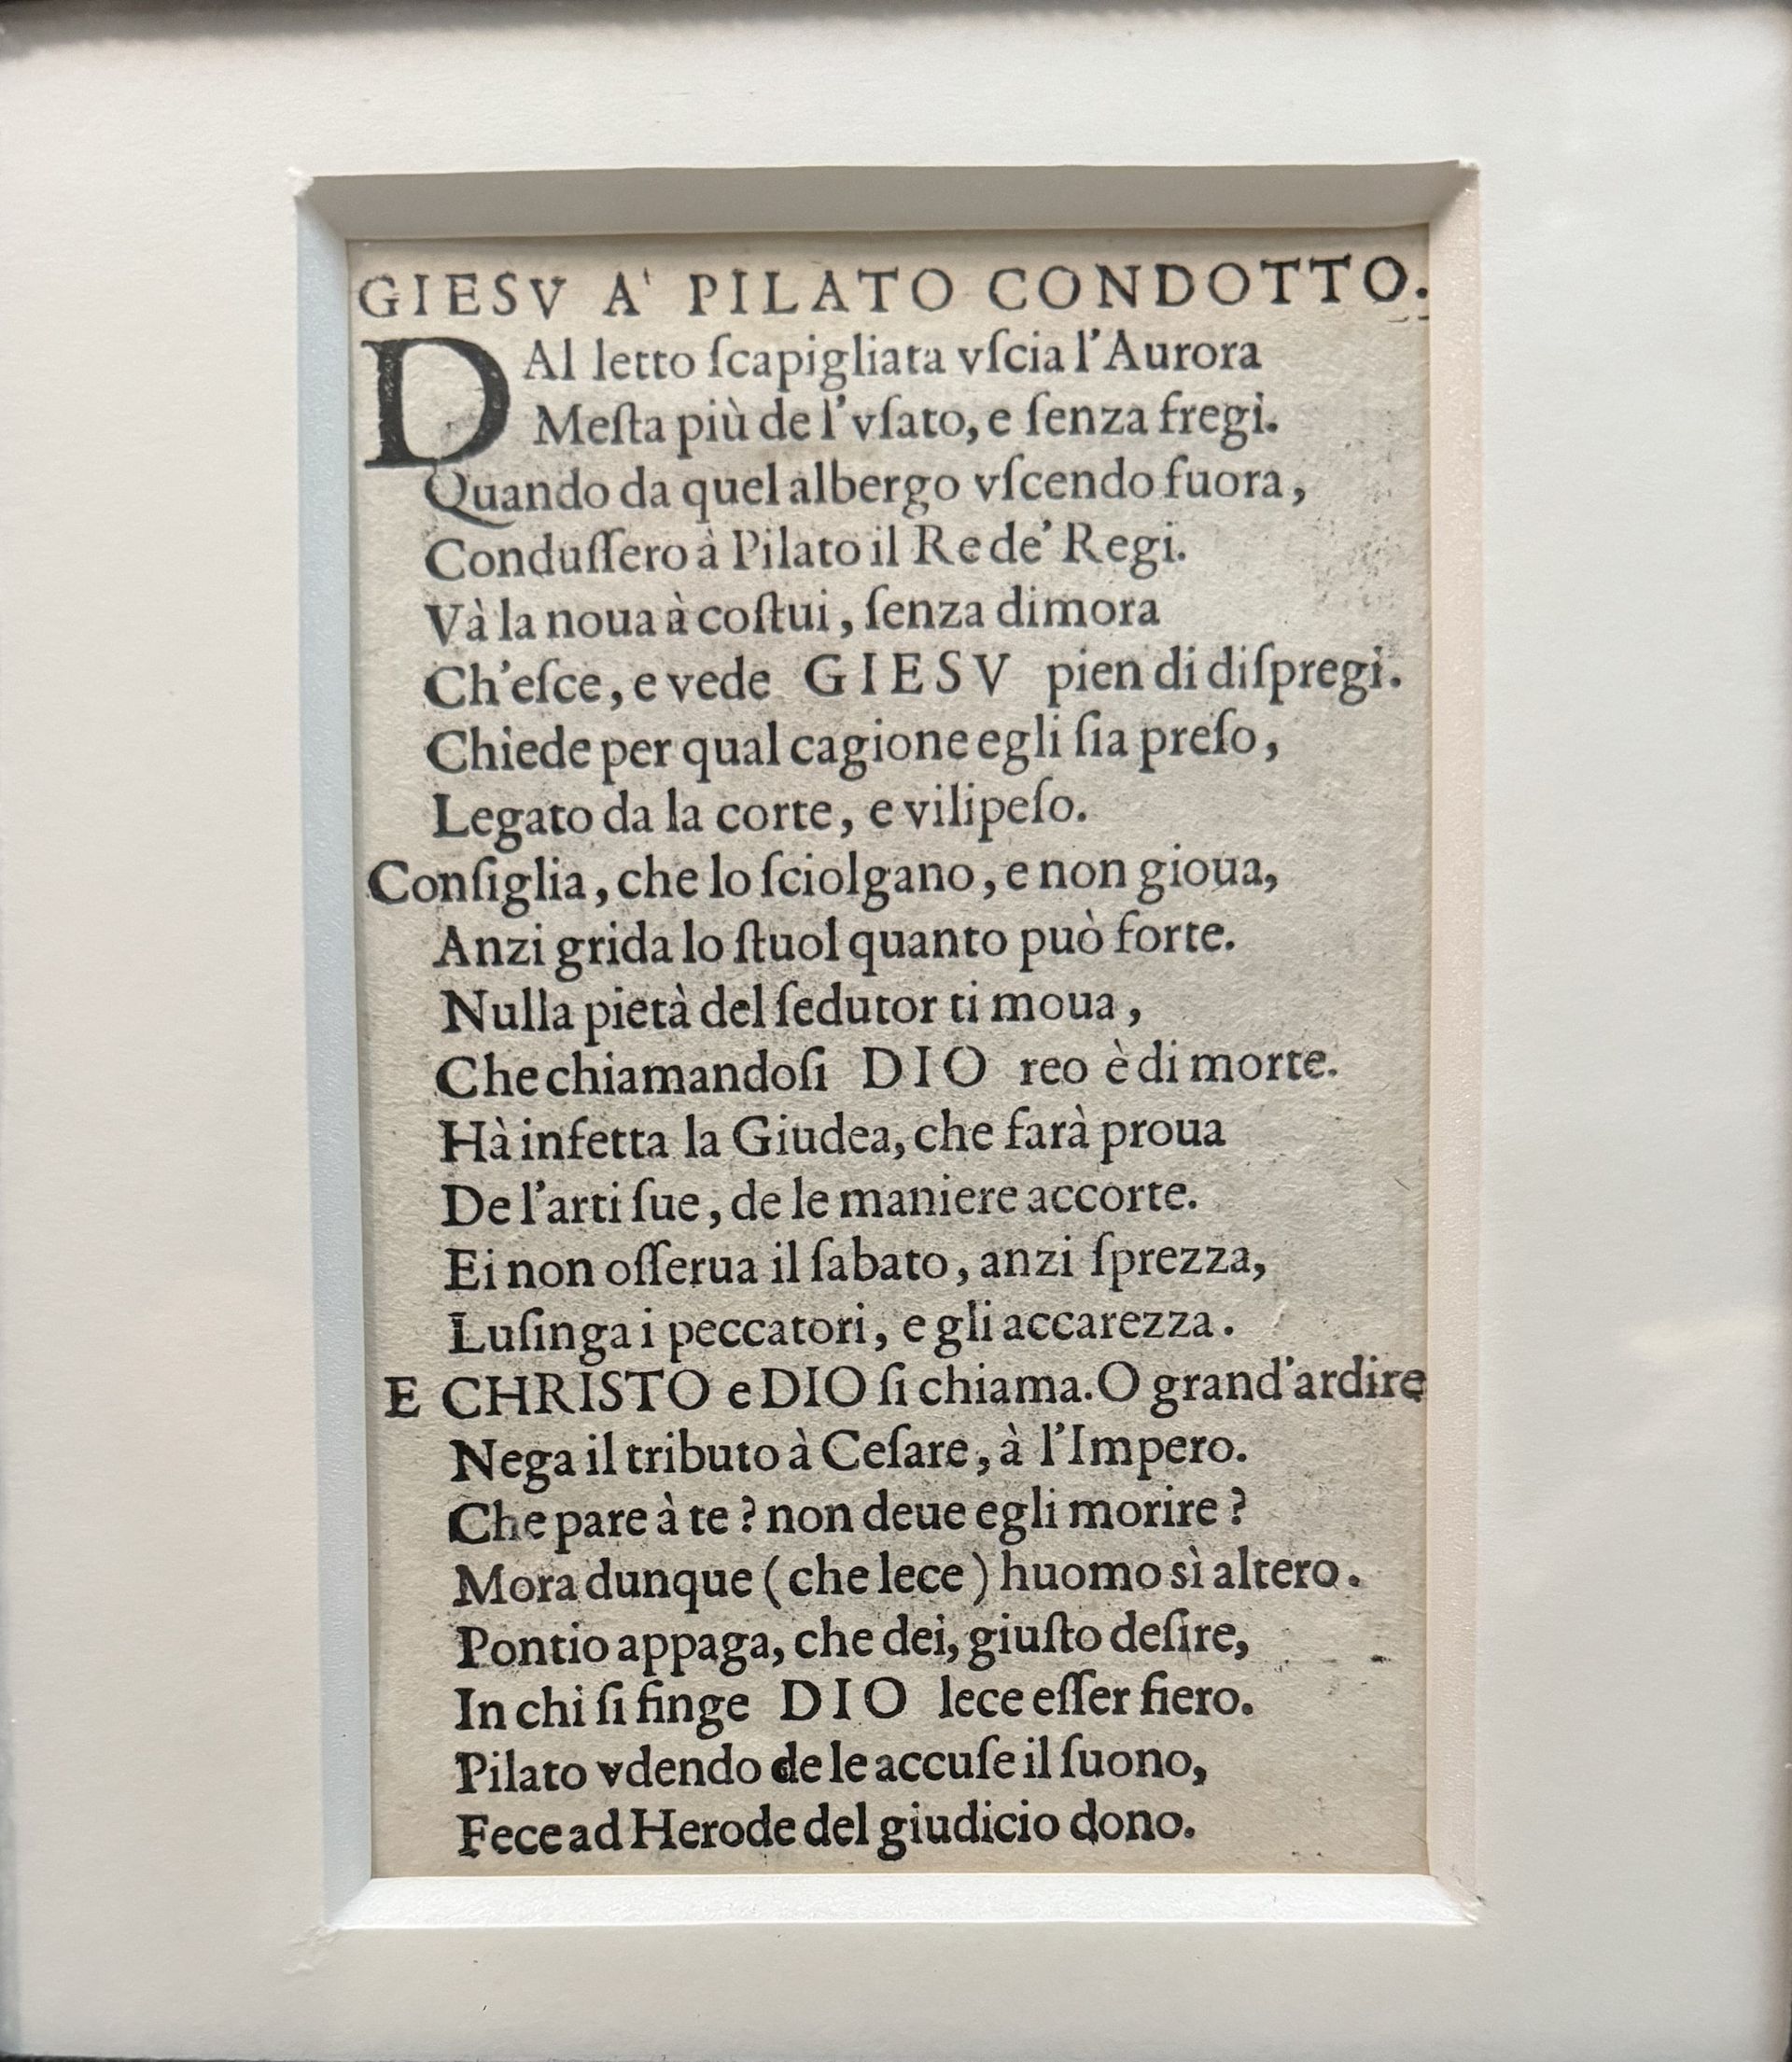 GIESV A' PILATO CONDOTTO.
DAl letto ſcapigliata vſcia l'Aurora
Meſta più de l'vſato, e ſenza fregi.
Quando da quel albergo vſcendo fuora,
Conduſſero à Pilato il Re de' Regi.
Và la noua à coſtui, ſenza dimora
Ch'eſce, e vede GIESV pien di diſpregi.
Chiede per qual cagione egli ſia preſo,
Legato da la corte, e vilipeſo.
Conſiglia, che lo ſciolgano, e non gioua,
Anzi grida lo ſtuol quanto può forte.
Nulla pietà del ſedutor ti moua,
Che chiamandoſi DIO reo è di morte.
Hà infetta la Giudea, che farà proua
De l'arti ſue, de le maniere accorte.
Ei non oſſerua il ſabato, anzi ſprezza,
Luſinga i peccatori, e gli accarezza.
E CHRISTO e DIO ſi chiama. O grand'ardire
Nega il tributo à Ceſare, à l'Impero.
Che pare à te? non deue egli morire?
Mora dunque (che lece) huomo sì altero.
Pontio appaga, che dei, giuſto deſire,
In chi ſi finge DIO lece eſſer fiero.
Pilato vdendo de le accuſe il ſuono,
Fece ad Herode del giudicio dono.